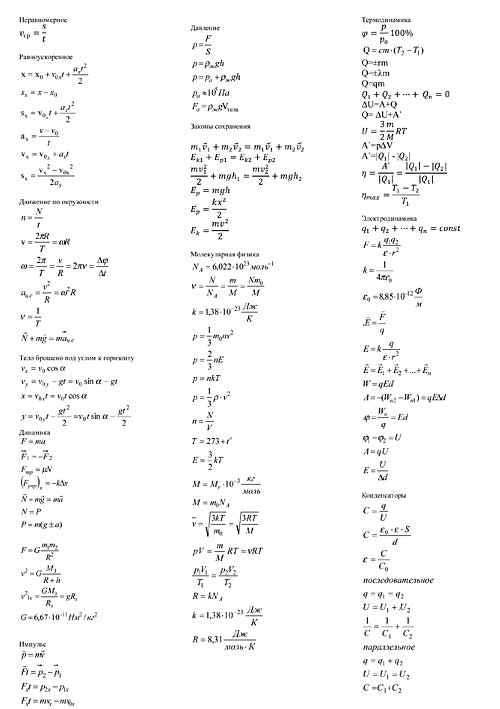 Неравномерное
v_ср = s/t
Равноускоренное
x = x₀ + v₀ₓt + aₓt²/2
sₓ = x − x₀
sₓ = v₀ₓt + aₓt²/2
aₓ = (v − v₀)/t
vₓ = v₀ₓ + aₓt
sₓ = (vₓ² − v₀ₓ²)/2aₓ
Движение по окружности
n = N/t
v = 2πR/T = ωR
ω = 2π/T = v/R = 2πν = Δφ/Δt
a_ц.с = v²/R = ω²R
ν = 1/T
N⃗ + mg⃗ = ma⃗_ц.с
Тело брошено под углом к горизонту
vₓ = v₀ cos α
v_y = v₀y − gt = v₀ sin α − gt
x = v₀ₓt = v₀t cos α
y = v₀yt − gt²/2 = v₀t sin α − gt²/2
Динамика
F = ma
F⃗₁ = −F⃗₂
F_тр = μN
(F_упр)ₓ = −kΔx
N⃗ + mg⃗ = ma⃗
N = P
P = m(g ± a)
F = G m₁m₂/R²
v² = G M₃/(R + h)
G = 6,67·10⁻¹¹ Нм²/кг²
Импульс
p⃗ = mv⃗
F⃗t = p⃗₂ − p⃗₁
Fₓt = p₂ₓ − p₁ₓ
Fₓt = mvₓ − mv₀ₓ
Давление
p = F/S
p = ρ_ж gh
p = p_а + ρ_ж gh
p_а ≈ 10⁵ Па
F_а = ρ_ж gV_тела
Законы сохранения
m₁v⃗₁ + m₂v⃗₂ = m₁v⃗₁ + m₂v⃗₂
E_k1 + E_p1 = E_k2 + E_p2
mv₀²/2 + mgh₁ = mv₀²/2 + mgh₂
E_p = mgh
E_p = kx²/2
E_k = mv²/2
Молекулярная физика
N_A = 6,022·10²³ моль⁻¹
ν = N/N_A = m/M = Nm₀/M
k = 1,38·10⁻²³ Дж/К
p = 1/3 m₀nv²
p = 2/3 nE
p = nkT
p = 1/3 ρ·v²
n = N/V
T = 273 + t°
E = 3/2 kT
M = M_r·10⁻³ кг/моль
M = m₀N_A
v̄ = √(3kT/m₀) = √(3RT/M)
pV = m/M RT = νRT
p₁V₁/T₁ = p₂V₂/T₂
R = kN_A
k = 1,38·10⁻²³ Дж/К
R = 8,31 Дж/(моль·К)
Термодинамика
φ = p/p₀ 100%
Q = cm·(T₂ − T₁)
Q=±rm
Q=±λm
Q=qm
Q₁ + Q₂ + ⋯ + Qₙ = 0
ΔU=A+Q
Q= ΔU+A'
U = 3/2 m/M RT
A'=pΔV
A'=|Q₁| - |Q₂|
η = A'/|Q₁| = (|Q₁| − |Q₂|)/|Q₁|
η_max = (T₁ − T₂)/T₁
Электродинамика
q₁ + q₂ + ⋯ + qₙ = const
F = k q₁q₂/(ε·r²)
k = 1/4πε₀
ε₀ = 8,85·10⁻¹² Ф/м
.E⃗ = F⃗/q
E = k q/(ε·r²)
E⃗ = E⃗₁ + E⃗₂ + ... + E⃗ₙ
W = qEd
A = −(W_п2 − W_п1) = qEΔd
φ = W_п/q = Ed
φ₁ − φ₂ = U
A = qU
E = U/Δd
Конденсаторы
C = q/U
C = ε₀·ε·S/d
ε = C/C₀
последовательное
q = q₁ = q₂
U = U₁ + U₂
1/C = 1/C₁ + 1/C₂
параллельное
q = q₁ + q₂
U = U₁ = U₂
C = C₁+C₂